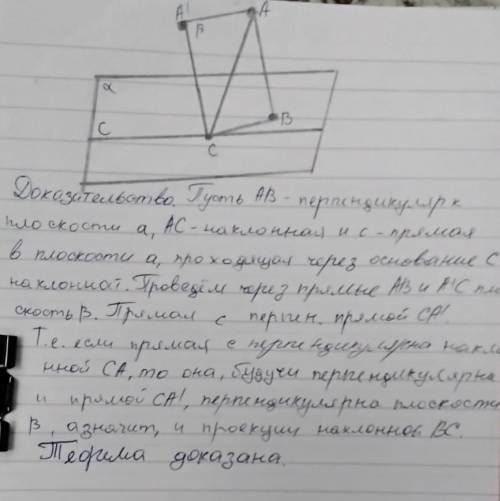 A' A
β
α
B
c
C
Доказательство. Пусть AB - перпендикуляр к
плоскости a, AC - наклонная и c - прямая
в плоскости a, проходящая через основание C
наклонной. Проведём через прямые AB и A'C пло
скость β. Прямая c перпен. прямой CA'
Т.е. если прямая c перпендикулярна накло
нной CA, то она, будучи перпендикулярна
и прямой CA', перпендикулярна плоскости
β, азначит, и проекции наклонной BC.
Теорима доказана.